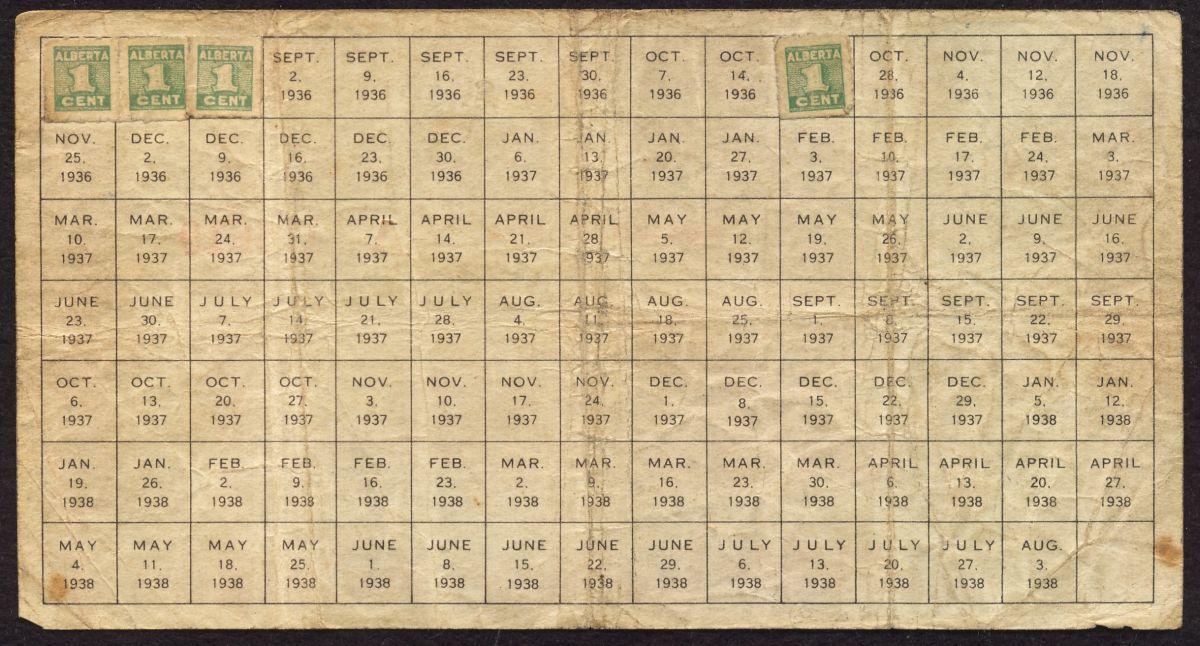 ALBERTA ALBERTA ALBERTA SEPT. SEPT. SEPT. SEPT. SEPT. OCT. OCT. ALBERTA OCT. NOV. NOV. NOV.
1 1 1 2, 9, 16, 23, 30, 7, 14, 1 28, 4, 12, 18,
CENT CENT CENT 1936 1936 1936 1936 1936 1936 1936 CENT 1936 1936 1936 1936
NOV. DEC. DEC. DEC. DEC. DEC. JAN. JAN. JAN. JAN. FEB. FEB. FEB. FEB. MAR.
25, 2, 9, 16, 23, 30, 6, 13, 20, 27, 3, 10, 17, 24, 3,
1936 1936 1936 1936 1936 1936 1937 1937 1937 1937 1937 1937 1937 1937 1937
MAR. MAR. MAR. MAR. APRIL APRIL APRIL APRIL MAY MAY MAY MAY JUNE JUNE JUNE
10, 17, 24, 31, 7, 14, 21, 28, 5, 12, 19, 26, 2, 9, 16,
1937 1937 1937 1937 1937 1937 1937 1937 1937 1937 1937 1937 1937 1937 1937
JUNE JUNE JULY JULY JULY JULY AUG. AUG. AUG. AUG. SEPT. SEPT. SEPT. SEPT. SEPT.
23, 30, 7, 14, 21, 28, 4, 11, 18, 25, 1, 8, 15, 22, 29,
1937 1937 1937 1937 1937 1937 1937 1937 1937 1937 1937 1937 1937 1937 1937
OCT. OCT. OCT. OCT. NOV. NOV. NOV. NOV. DEC. DEC. DEC. DEC. DEC. JAN. JAN.
6, 13, 20, 27, 3, 10, 17, 24, 1, 8, 15, 22, 29, 5, 12,
1937 1937 1937 1937 1937 1937 1937 1937 1937 1937 1937 1937 1937 1938 1938
JAN. JAN. FEB. FEB. FEB. FEB. MAR. MAR. MAR. MAR. MAR. APRIL APRIL APRIL APRIL
19, 26, 2, 9, 16, 23, 2, 9, 16, 23, 30, 6, 13, 20, 27,
1938 1938 1938 1938 1938 1938 1938 1938 1938 1938 1938 1938 1938 1938 1938
MAY MAY MAY MAY JUNE JUNE JUNE JUNE JUNE JULY JULY JULY JULY AUG.
4, 11, 18, 25, 1, 8, 15, 22, 29, 6, 13, 20, 27, 3,
1938 1938 1938 1938 1938 1938 1938 1938 1938 1938 1938 1938 1938 1938